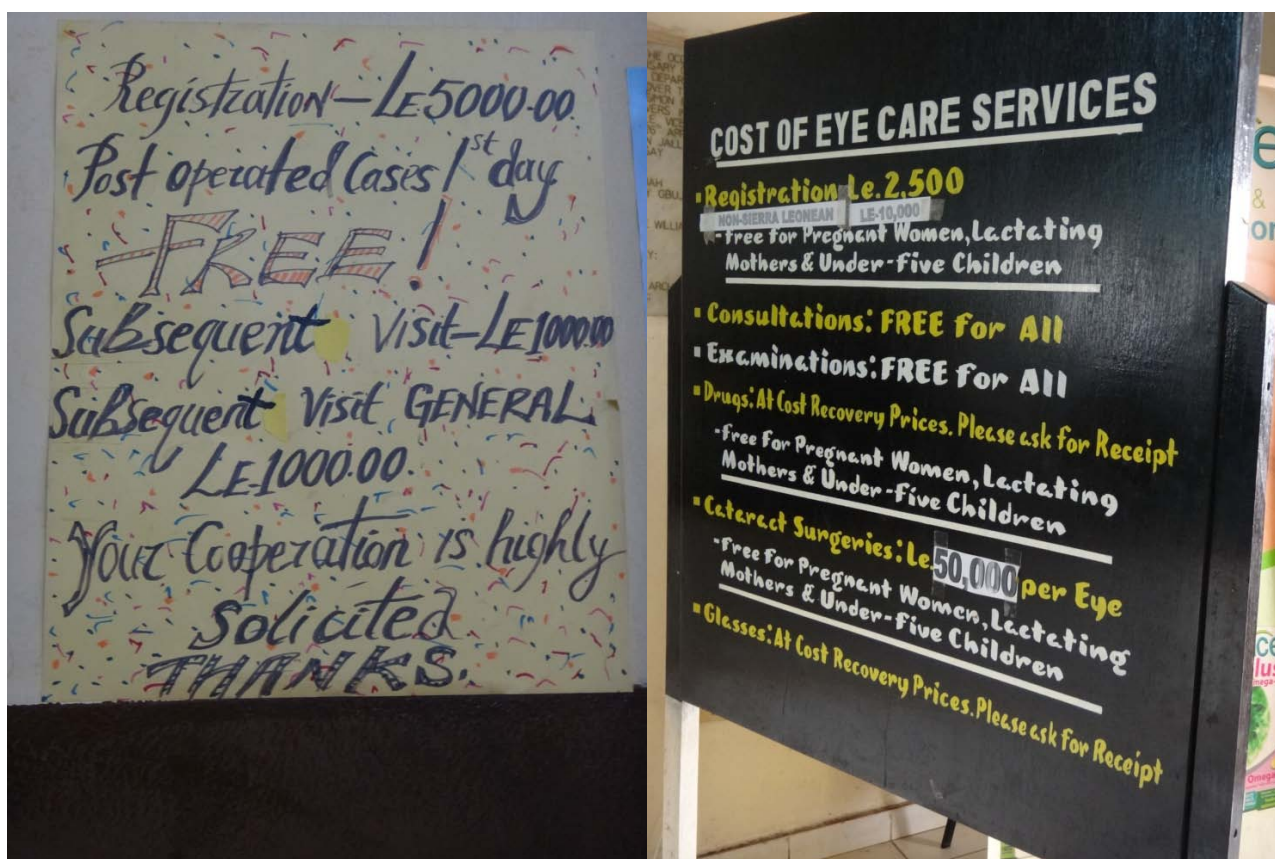 Registration – LE5000.00
Post operated Cases 1st day
– FREE!
Subsequent Visit – LE1000.00
Subsequent Visit GENERAL
LE1000.00.
Your Cooperation is highly
Solicited
THANKS.
COST OF EYE CARE SERVICES
▪Registration Le.2.500
NON-SIERRA LEONEAN LE-10,000
-free for Pregnant Women, Lactating
Mothers & Under-Five Children
▪Consultations: FREE for All
▪Examinations: FREE for All
▪Drugs: At Cost Recovery Prices. Please ask for Receipt
-free for Pregnant Women, Lactating
Mothers & Under-Five Children
▪Cataract Surgeries: Le.50,000 per Eye
-free for Pregnant Women, Lactating
Mothers & Under-Five Children
▪Glasses: At Cost Recovery Prices. Please ask for Receipt